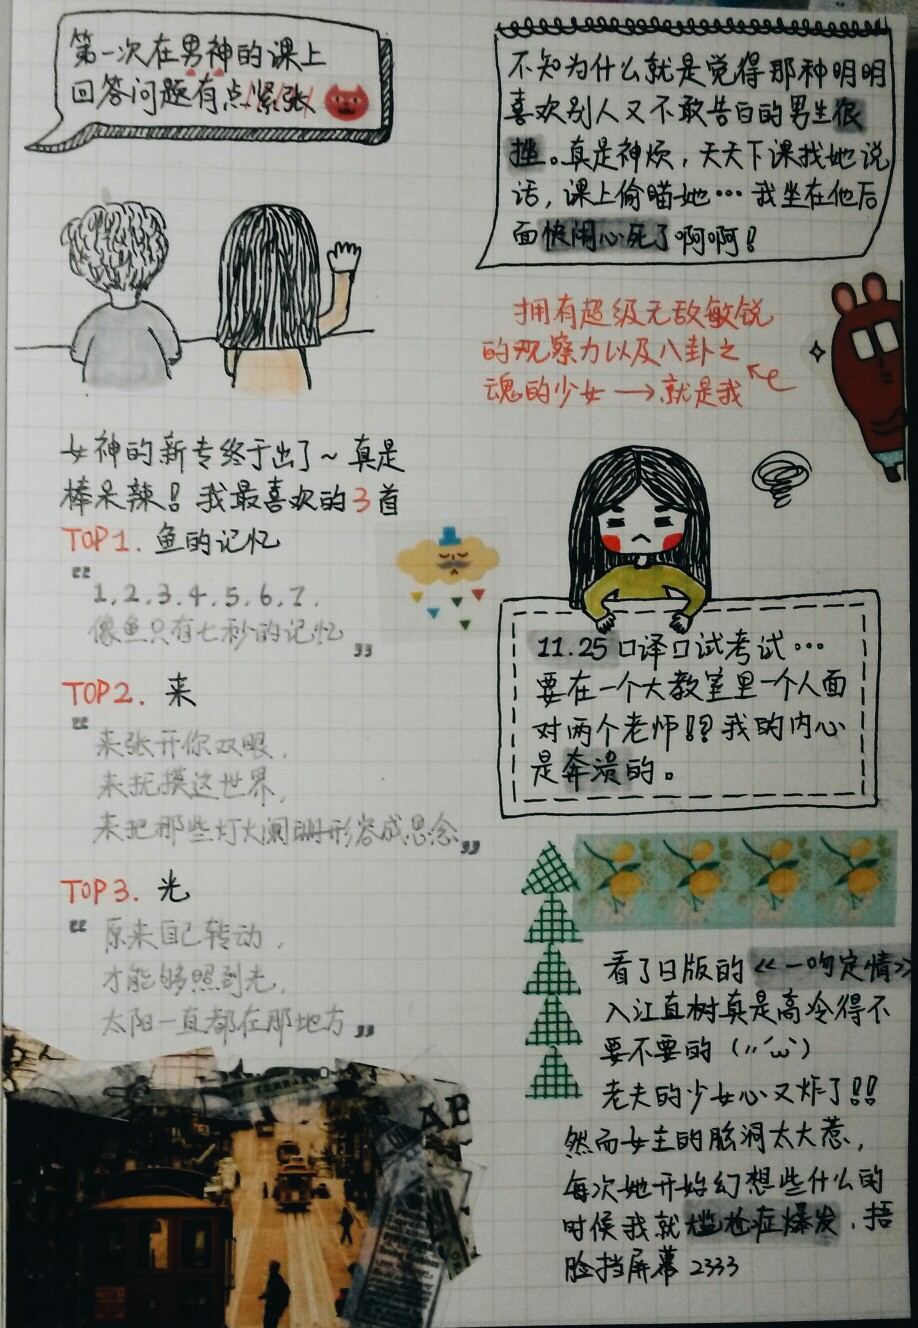 第一次在男神的课上
回答问题有点紧张
女神的新专终于出了~真是
棒呆辣！我最喜欢的3首
TOP1.鱼的记忆
"1.2.3.4.5.6.7.
像鱼只有七秒的记忆"
TOP2.来
"来张开你双眼，
来抚摸这世界，
来把那些灯火阑珊形容成思念"
TOP3.光
"原来自己转动，
才能够照到光，
太阳一直都在那地方"
AB
不知为什么就是觉得那种明明
喜欢别人又不敢告白的男生很
挫。真是神烦，天天下课找她说
话，课上偷瞄她…我坐在他后
面快闹心死了啊啊！
拥有超级无敌敏锐
的观察力以及八卦之
魂的少女→就是我
11.25口译口试考试…
要在一个大教室里一个人面
对两个老师!!?我的内心
是奔溃的。
看了日版的<<一吻定情>>
入江直树真是高冷得不
要不要的(〃'ω')
老夫的少女心又炸了!!
然而女主的脑洞太大惹，
每次她开始幻想些什么的
时候我就尴尬症爆发，捂
脸挡屏幕2333